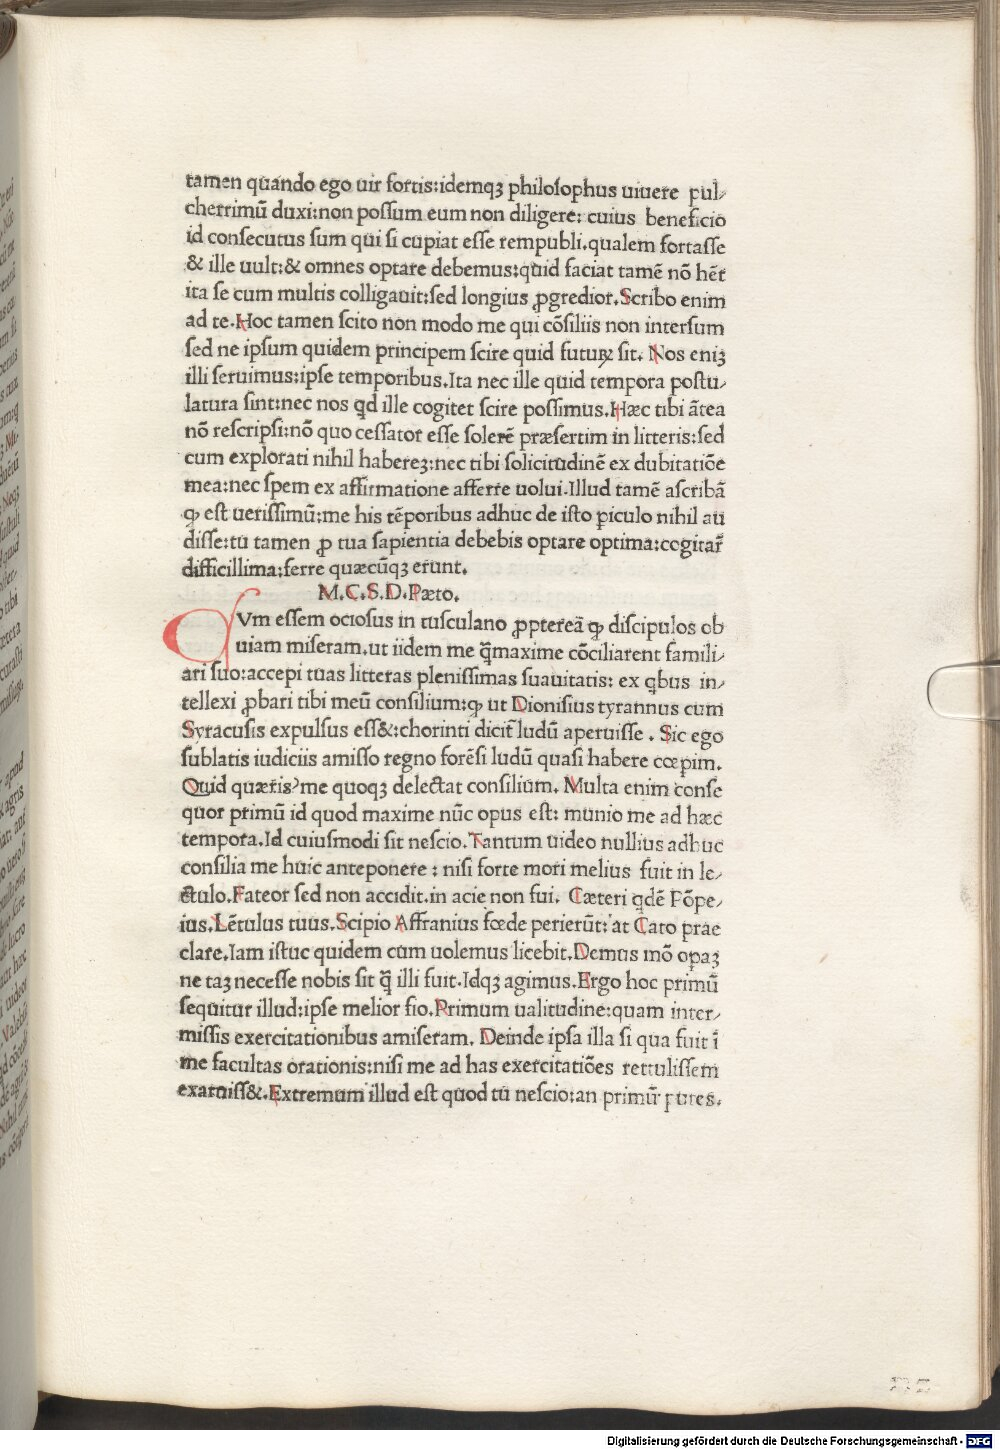 tamen quando ego uir fortis:idemqꝫ philosophus uiuere pul⸗
cherrimū duxi:non possum eum non diligere: cuius beneficio
id consecutus sum qui si cupiat esse rempubli.qualem fortasse
& ille uult:& omnes optare debemus:quid faciat tamē nō hēt
ita se cum multis colligauit:sed longius ꝓgredior.Scribo enim
ad te.Hoc tamen scito non modo me qui cōsiliis non intersum
sed ne ipsum quidem principem scire quid futuꝝ sit. Nos eniꝫ
illi seruimus:ipse temporibus.Ita nec ille quid tempora postu⸗
latura sint:nec nos qd ille cogitet scire possimus.Hæc tibi ātea
nō rescripsi:nō quo cessator esse solerē præsertim in litteris:sed
cum explorati nihil habereꝫ:nec tibi solicitudinē ex dubitatiōe
mea:nec spem ex affirmatione afferre uolui.Illud tamē ascribā
ꝙ est uerissimū:me his tēporibus adhuc de isto piculo nihil au
disse:tu tamen ꝓ tua sapientia debebis optare optima:cogitar̄
difficillima:ferre quæcūqꝫ erunt.
M.C.S.D.Pæto.
CVm essem ociosus in tusculano ꝓptereā ꝙ discipulos ob
uiam miseram.ut iidem me q̄maxime cōciliarent famili⸗
ari suo:accepi tuas litteras plenissimas suauitatis: ex qbus in⸗
tellexi ꝓbari tibi meū consilium:ꝙ ut Dionisius tyrannus cum
Syracusis expulsus ess&:chorinti dicit̄ ludū aperuisse . Sic ego
sublatis iudiciis amisso regno forēsi ludū quasi habere cœpim.
Quid quæris?me quoqꝫ delectat consilium. Multa enim conse
quor primū id quod maxime nūc opus est: munio me ad hæc
tempora.Id cuiusmodi sit nescio.Tantum uideo nullius adhuc
consilia me huic anteponere : nisi forte mori melius fuit in le⸗
ctulo.Fateor sed non accidit.in acie non fui. Cæteri qdē Pōpe⸗
ius.Lētulus tuus.Scipio Affranius fœde perierūt:at Cato præ
clare.Iam istuc quidem cum uolemus licebit.Demus mō opaꝫ
ne taꝫ necesse nobis sit q̄ illi fuit.Idqꝫ agimus.Ergo hoc primū
sequitur illud:ipse melior fio.Primum ualitudine:quam inter⸗
missis exercitationibus amiseram. Deinde ipsa illa si qua fuit ī
me facultas orationis:nisi me ad has exercitatiōes rettulissem
exaruiss&.Extremum illud est quod tu nescio:an primū putes.
Digitalisierung gefördert durch die Deutsche Forschungsgemeinschaft - DFG